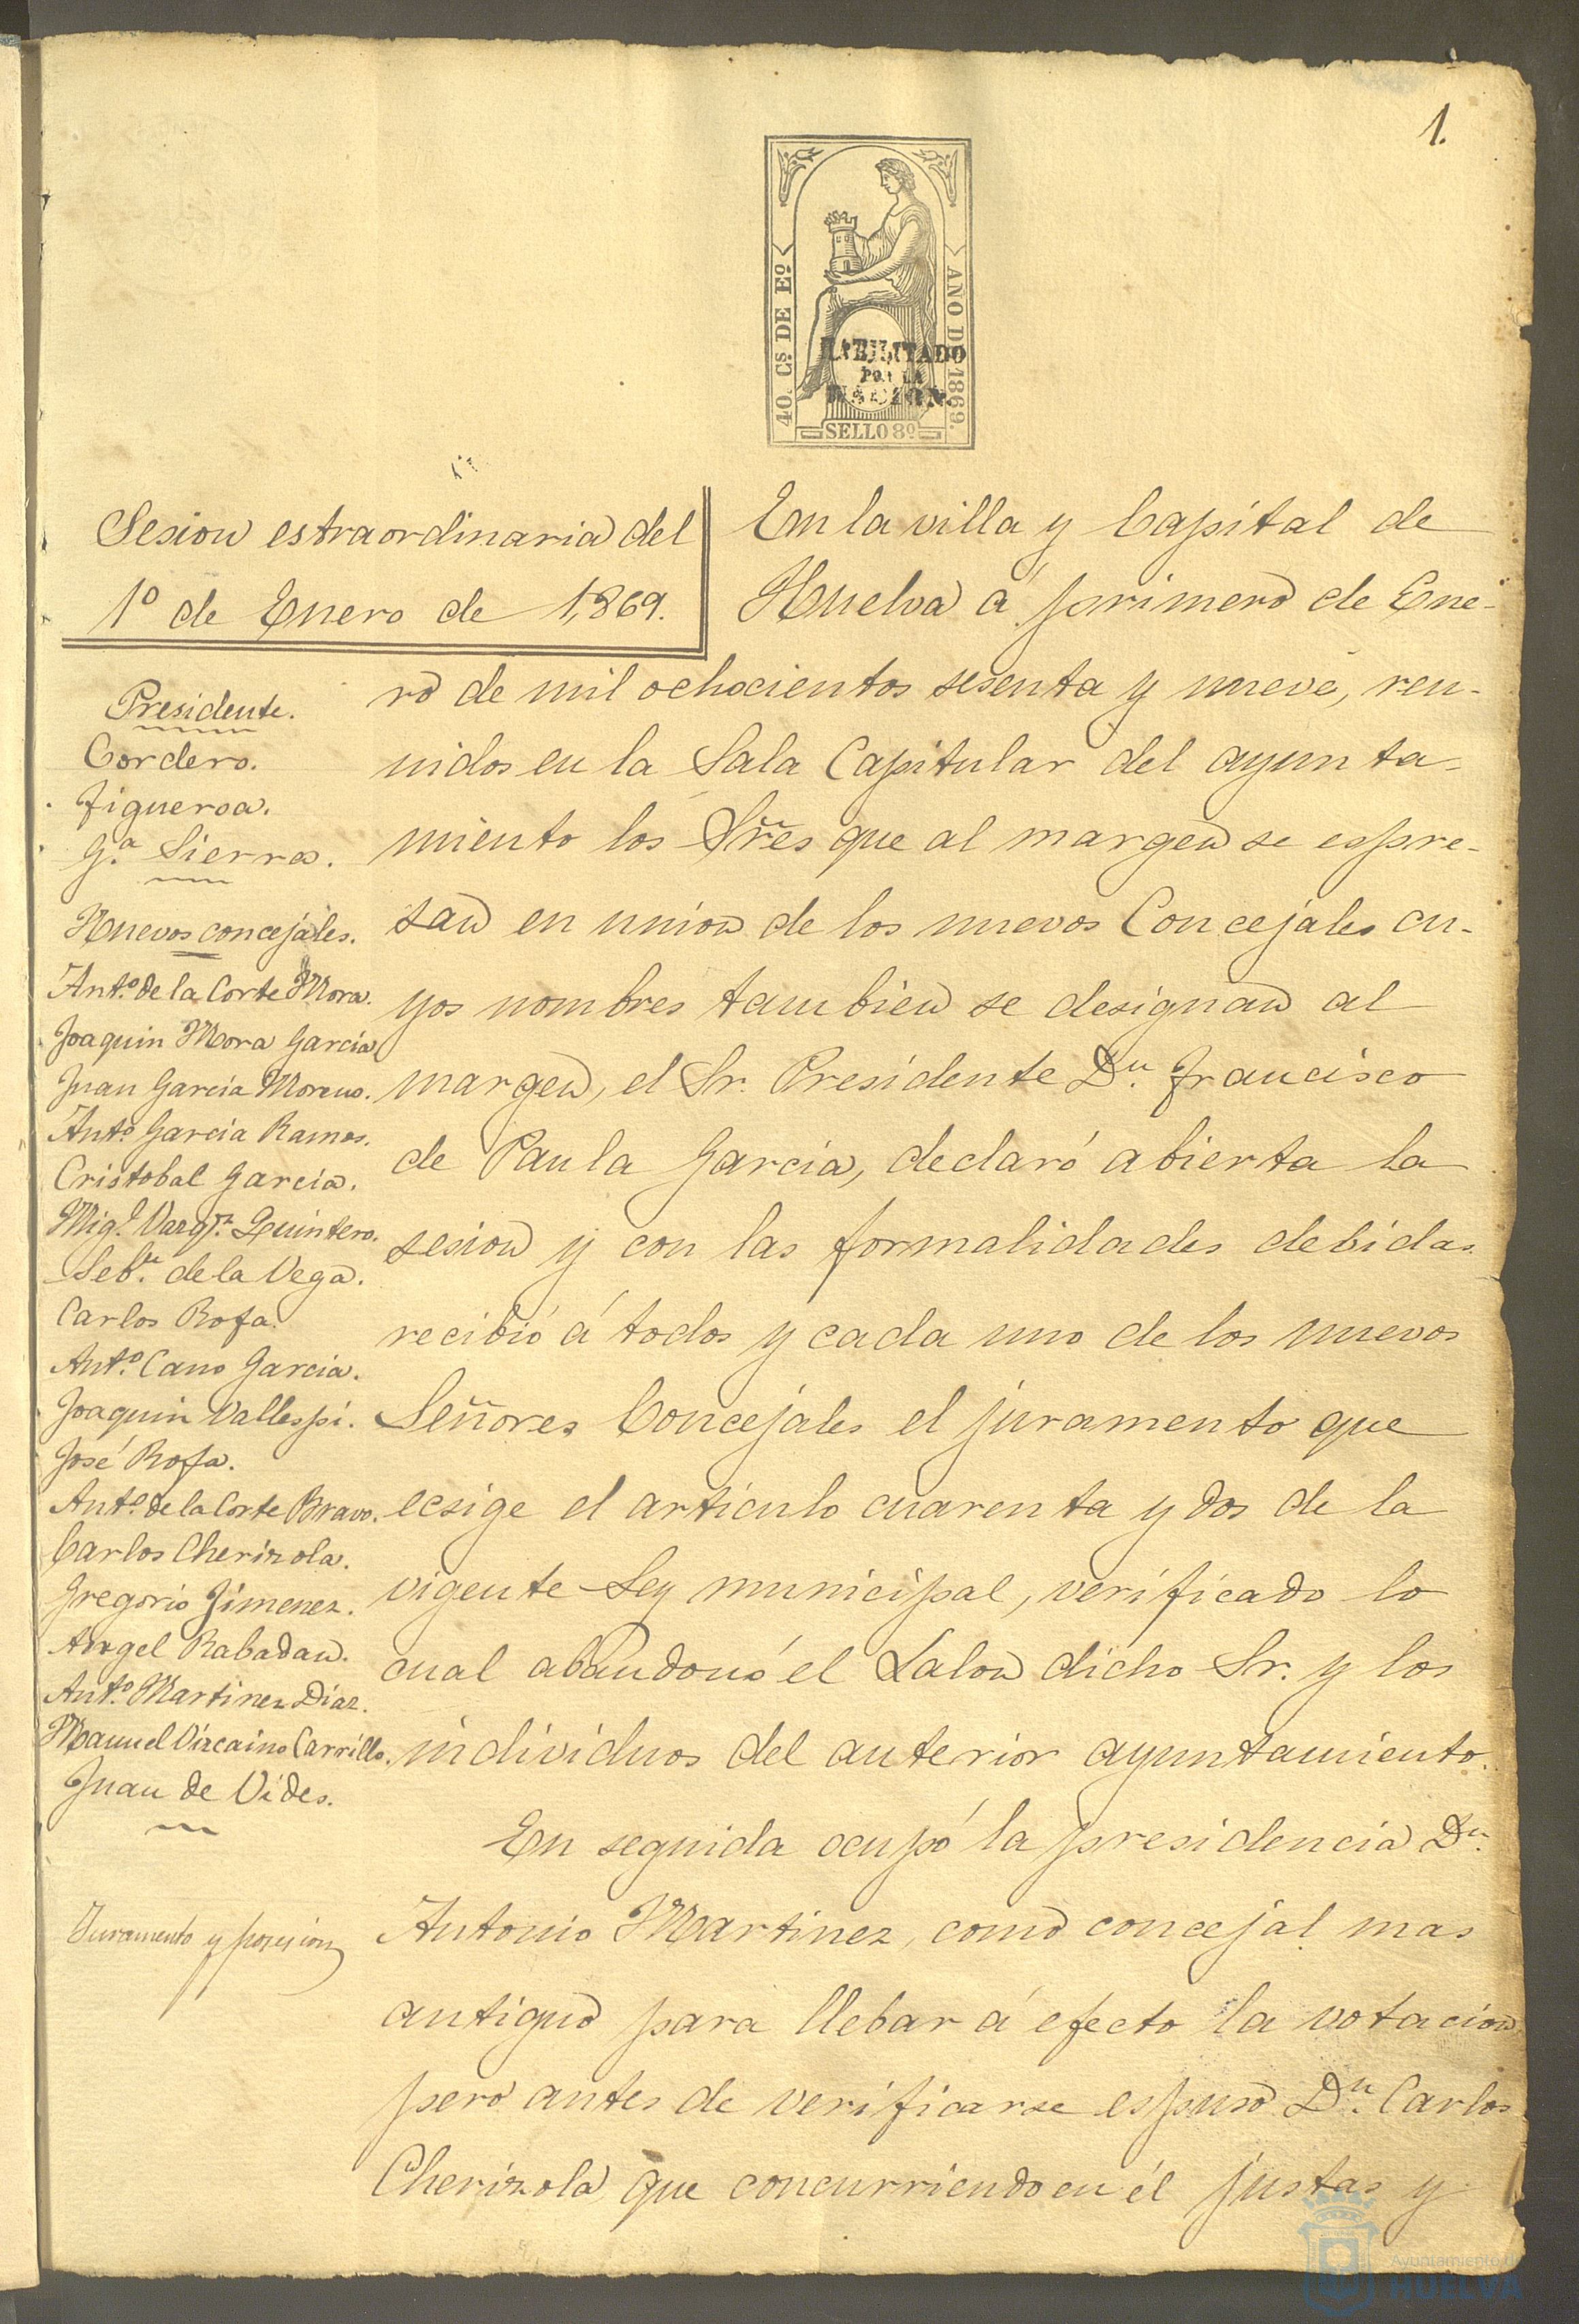 1.
40. Cs. DE Eº
AÑO DE 1869.
HABILITADO
POR LA
NACION.
SELLO 8º
Sesion estraordinaria del
1º de Enero de 1,869.
Presidente.
Cordero.
Figueroa.
G.ª Sierra.
Nuevos concejales.
Ant.º de la Corte Mora.
Joaquin Mora Garcia
Juan Garcia Moreno.
Ant.º Garcia Ramos.
Cristobal Garcia.
Mig.l Vazq.z Quintero.
Seb.n de la Vega.
Carlos Rofa.
Ant.º Cano Garcia.
Joaquin Vallespi.
José Rofa.
Ant.º de la Corte Bravo.
Carlos Cherizola.
Gregorio Jimenez.
Angel Rabadan.
Ant.º Martinez Diaz.
Manuel Vizcaino Carrillo.
Juan de Vides.
Juramento y posesion
En la villa y Capital de
Huelva á primero de Ene-
ro de mil ochocientos sesenta y nueve, reu-
nidos en la Sala Capitular del ayunta-
miento los Sres que al margen se espre-
san en union de los nuevos Concejales cu-
yos nombres tambien se designan al
margen, el Sr. Presidente D.n Francisco
de Paula Garcia, declaró abierta la
sesion y con las formalidades debidas
recibió á todos y cada uno de los nuevos
Señores Concejales el juramento que
ecsige el articulo cuarenta y dos de la
vigente Ley municipal, verificado lo
cual abandonó el Salon dicho Sr. y los
individuos del anterior ayuntamiento.
En seguida ocupó la presidencia D.n
Antonio Martinez, como concejal mas
antiguo para llebar á efecto la votacion
pero antes de verificarse espuso D.n Carlos
Cherizola que concurriendo en él justas y
Ayuntamiento de
HUELVA